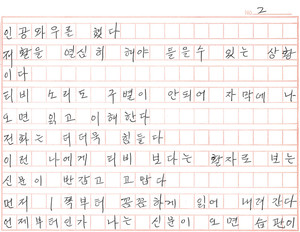 2
인공와우도 했다
저환을 열심히 해야 들을수 있는 상황
이다
티비 소리도 구별이 안되어 자막에 나
오면 읽고 이해한다
전화는 더더욱 힘들다
이런 나에게 티비 보다는 활자로 보는
신문이 반갑고 고맙다
먼저 1쪽부터 꼼꼼하게 읽어 내려간다
언제부터인가 나는 신문이 오면 습관이